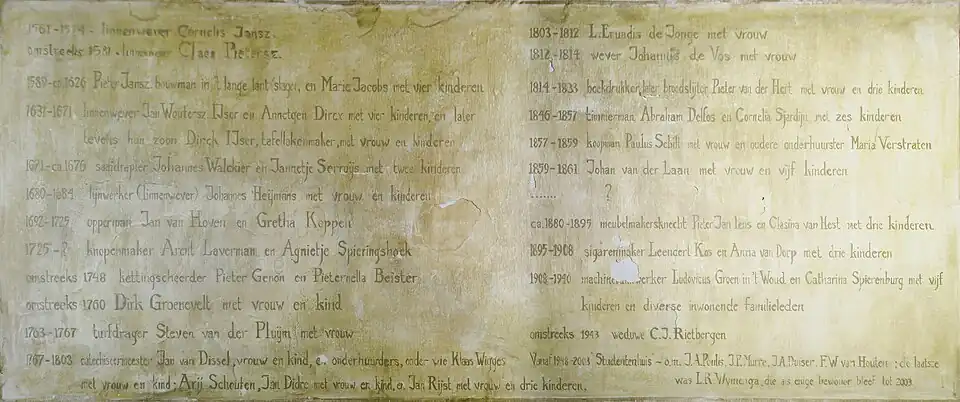 1561-1574 - linnenwever Cornelis Jansz.
omstreeks 1581 - linnenwever Claes Pietersz.
1589-ca.1626 Pieter Jansz. bouwman in 't lange lant slagen, en Marie Jacobs met vier kinderen
1631-1671 linnenwever Jan Woutersz. IJser en Annetgen Dircx met vier kinderen, en later
tevens hun zoon Dirck IJser, tafellakenmaker, met vrouw en kinderen
1671-ca.1676 saaidrapier Johannes Walouer en Jannetje Serruijs met twee kinderen
1680-1684 lijnwerker (linnenwever) Johannes Heijmans met vrouw en kinderen
1692-1725 opperman Jan van Hoven en Gretha Koppen
1725-? knopenmaker Arolt Laverman en Agnietje Spieringshoek
omstreeks 1748 kettingscheerder Pieter Genon en Pieternella Beister
omstreeks 1760 Dirk Groenevelt met vrouw en kind
1763-1767 turfdrager Steven van der Pluijm met vrouw
1767-1803 catechiseermeester Jan van Dissel, vrouw en kind, e. onderhuurders, onder wie Klaas Wintjes
met vrouw en kind; Arij Scheuten, Jan Didre met vrouw en kind, e. Jan Rijst met vrouw en drie kinderen.
1803-1812 L. Erundis de Jonge met vrouw
1812-1814 wever Johannes de Vos met vrouw
1814-1833 boekdrukker, later broodslijter Pieter van der Hert met vrouw en drie kinderen
1846-1857 timmerman Abraham Delfos en Cornelia Sjardijn met zes kinderen
1857-1859 koopman Paulus Schilt met vrouw en oudere onderhuurster Maria Verstraten
1859-1861 Johan van der Laan met vrouw en vijf kinderen
....... ?
ca.1880-1895 meubelmakersknecht Pieter Jan Iens en Clasina van Hest met drie kinderen.
1895-1908 sigarenmaker Leendert Kos en Anna van Dorp met drie kinderen
1908-1940 machine werker Ludovicus Groen in 't Woud en Catharina Spierenburg met vijf
kinderen en diverse inwonende familieleden
omstreeks 1943 weduwe C.J. Rietbergen
Vanaf 1948-2003 Studentenhuis - o.m. J.A. J.P. Murre, J.A. F.W. van Houten; de laatste
was L.R. Wymenga, die als enige bewoner bleef tot 2003.